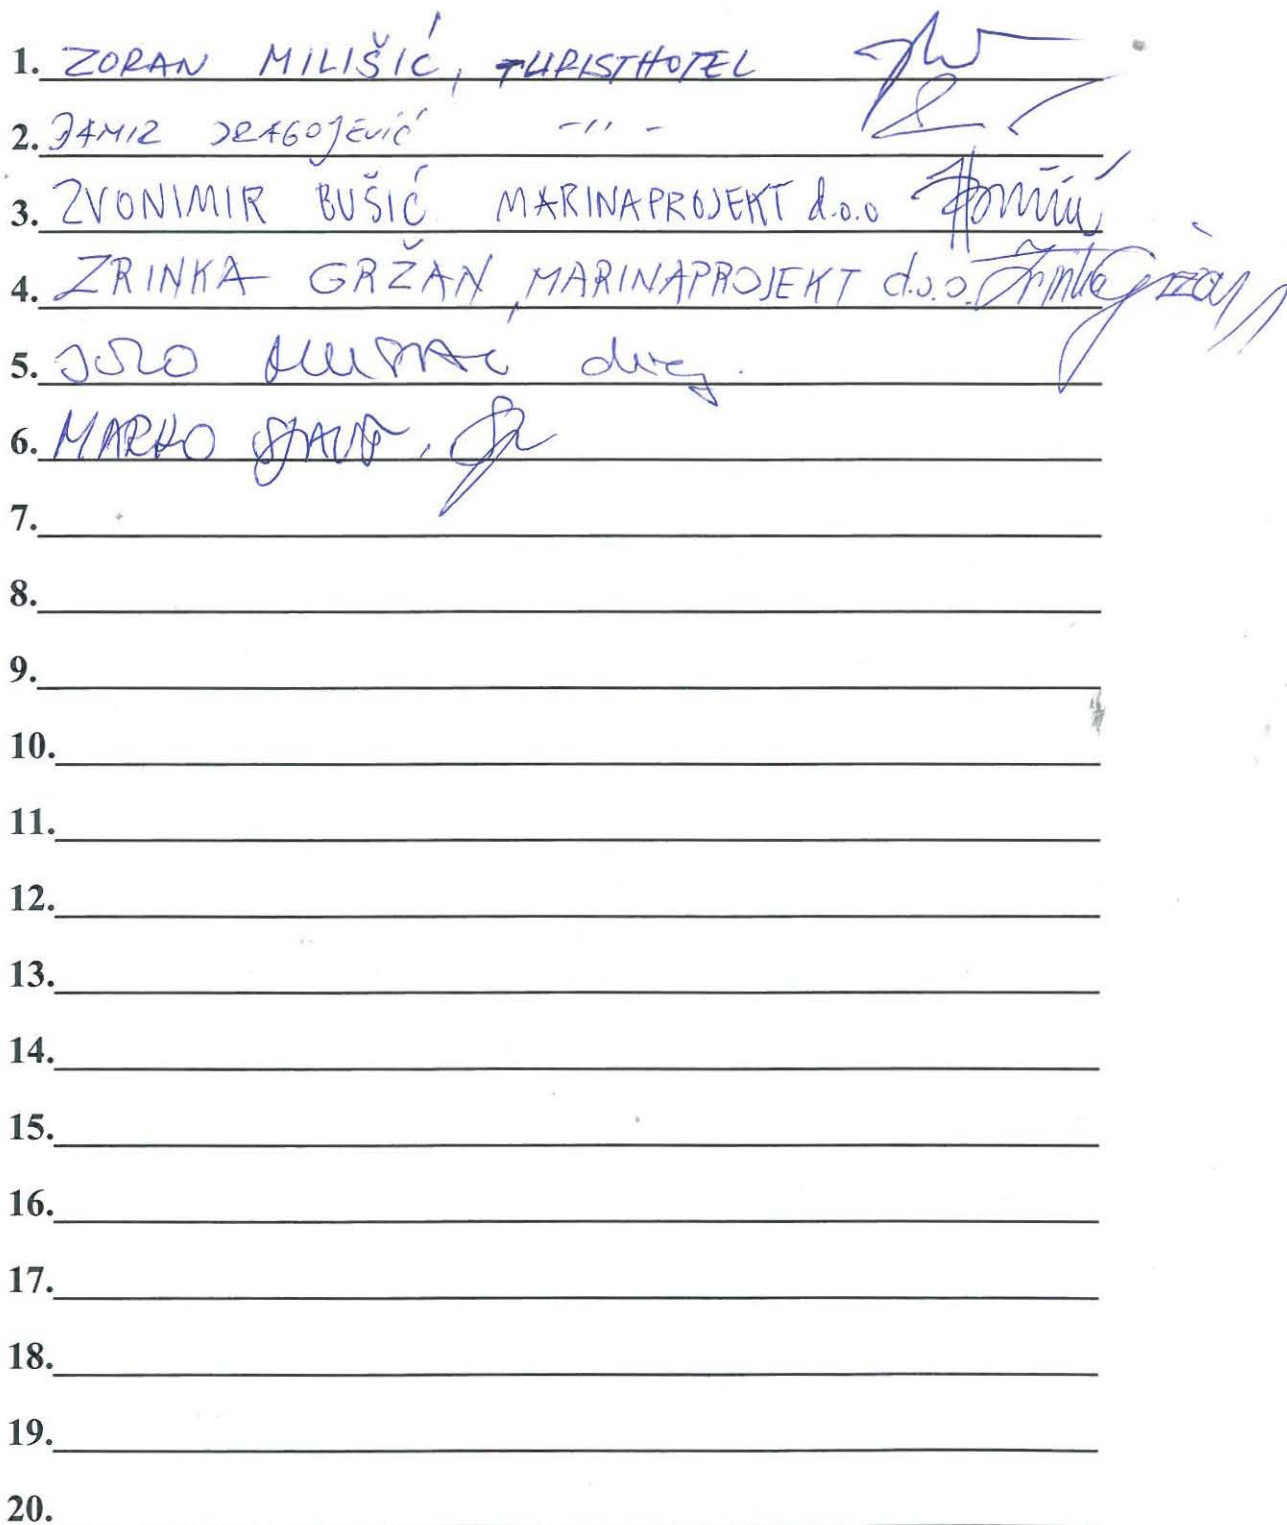 1. ZORAN MILIŠIĆ, TURISTHOTEL
2. DAMIR DRAGOJEVIĆ -11-
3. ZVONIMIR BUŠIĆ MARINAPROJEKT d.o.o
4. ZRINKA GRŽAN, MARINAPROJEKT d.o.o. Zrinka Gržan
5.
6. MARKO
7.
8.
9.
10.
11.
12.
13.
14.
15.
16.
17.
18.
19.
20.